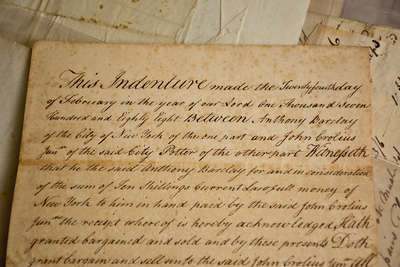 This Indenture made the Twentyfourth day
of February in the year of our Lord One Thousand Seven
Hundred and Eighty Eight Between Anthony Barclay
of the City of New York of the one part and John Crolius
Junr. of the said City Potter of the other part Witnesseth
that he the said Anthony Barclay for and in consideration
of the sum of Ten Shillings Current Lawfull money of
New York to him in hand paid by the said John Crolius
Junr. the receipt where of is hereby acknowledged, Hath
granted bargained and sold and by these presents Doth
grant bargain and sell unto the said John Crolius Junr. All